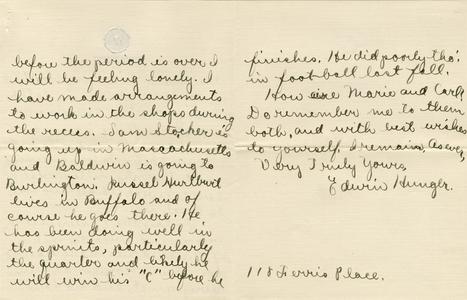 before the period is over I
will be feeling lonely. I
have made arrangements
to work in the shops during
the recess. Sam Stocker is
going up in Massachusetts
and Baldwin is going to
Burlington. Russel Hurlburt
lives in Buffalo and of
course he goes there. He
has been doing well in
the sprints, particularly
the quarter and likely he
will win his "C" before he
finishes. He did poorly tho'
in foot ball last fall.
How are Marie and Carl?
Do remember me to them
both, and with best wishes
to yourself, I remain, As ever,
Very Truly Yours,
Edwin Hunger.
118 Ferris Place.